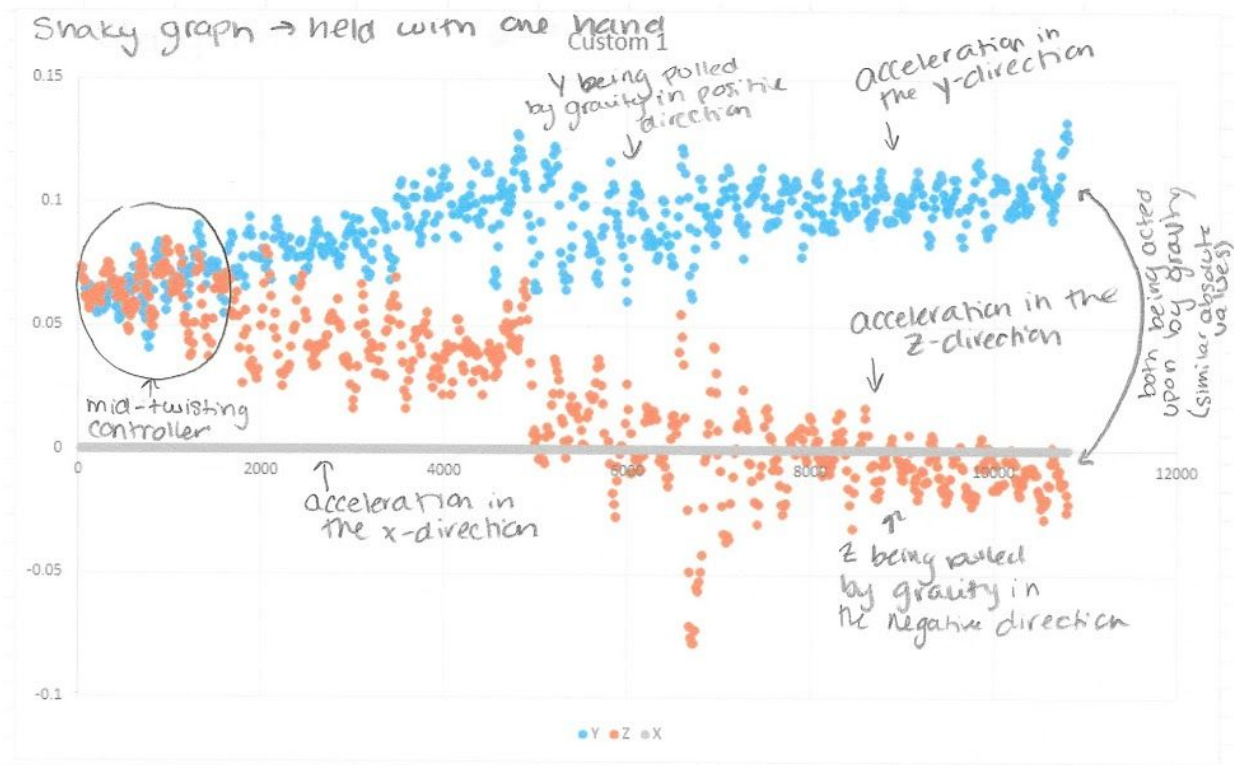 Shaky graph → held with one hand
Custom 1
0.15
0.1
0.05
0
-0.05
-0.1
0
2000
4000
6000
8000
10000
12000
Y being pulled
by gravity in positive
direction
acceleration in
the y-direction
mid-twisting
controller
acceleration in
the x-direction
acceleration in the
Z-direction
Z being pulled
by gravity in
the negative direction
both being acted
upon by gravity
(similar absolute
values)
Y Z X